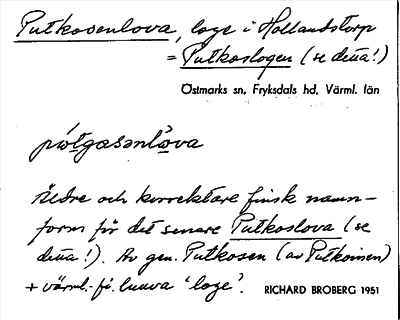 Putkosenlova, loge i Hollandstorp
= Putkoslogen (se detta!)
Östmarks sn, Fryksdals hd, Värml. län
pùtgɑsənlòva
Äldre och korrektare finsk namn-
form för det senare Putkoslova (se
detta!). Av gen. Putkosen (av Putkoinen)
+ värml.-fi. luuva 'loge'.
RICHARD BROBERG 1951